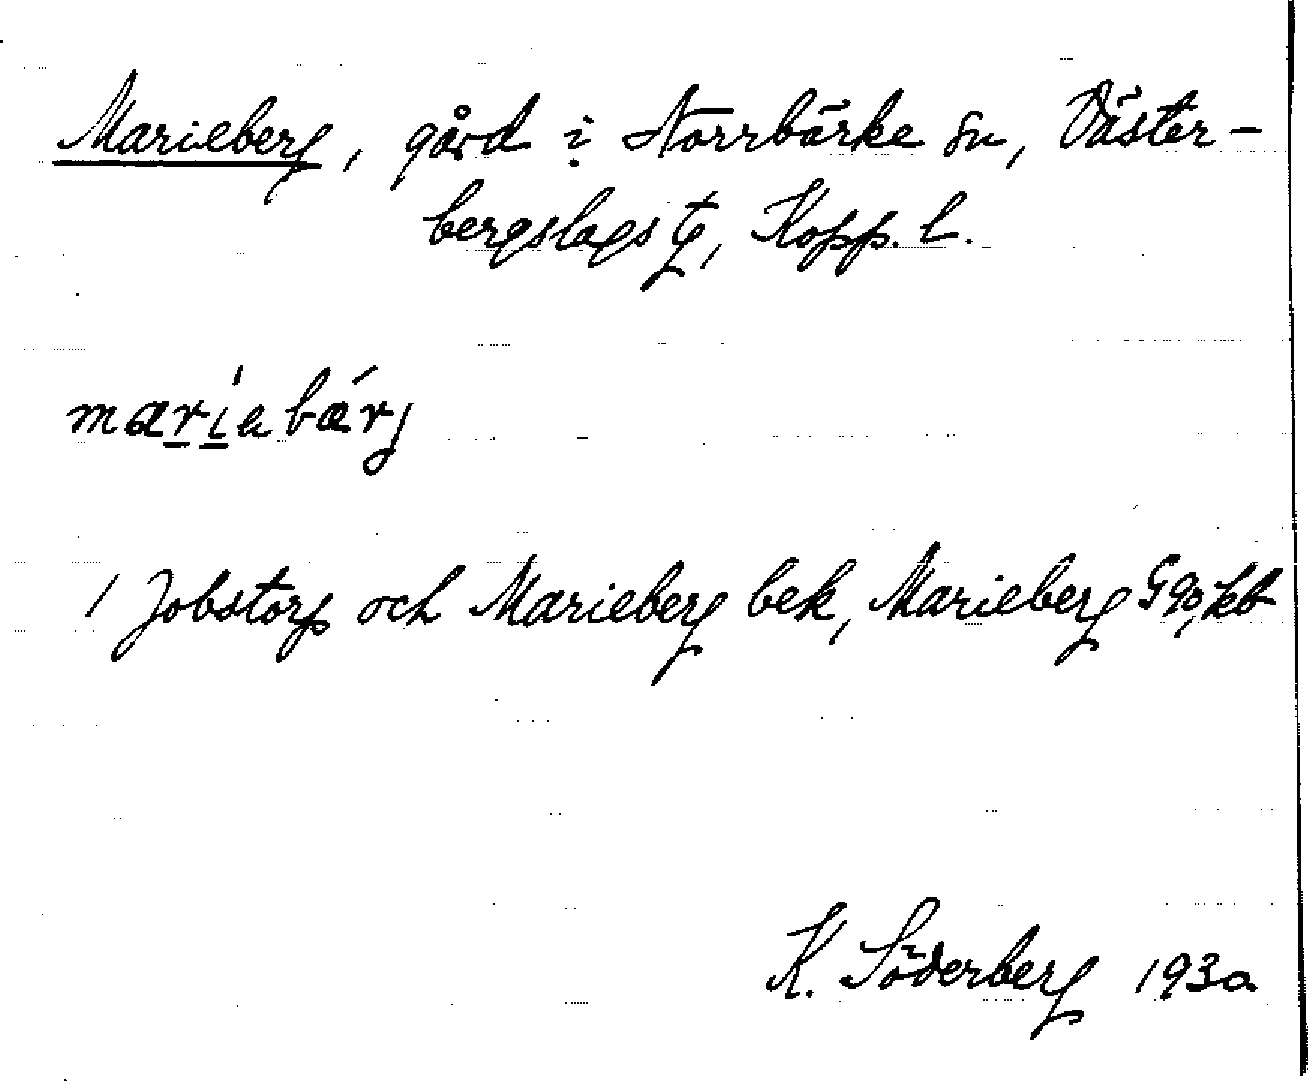 Marieberg, gård i Norrbärke sn, Väster-
bergslags tg, Kopp. l.
marìabǽrj
1 Jobstorp och Marieberg bek, Marieberg G 90, kb
K. Söderberg 1930